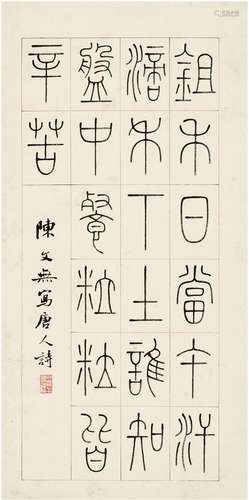 鉏禾日當午汗
滴禾下土誰知
盤中餐粒粒皆
辛苦
陳文無寫唐人詩